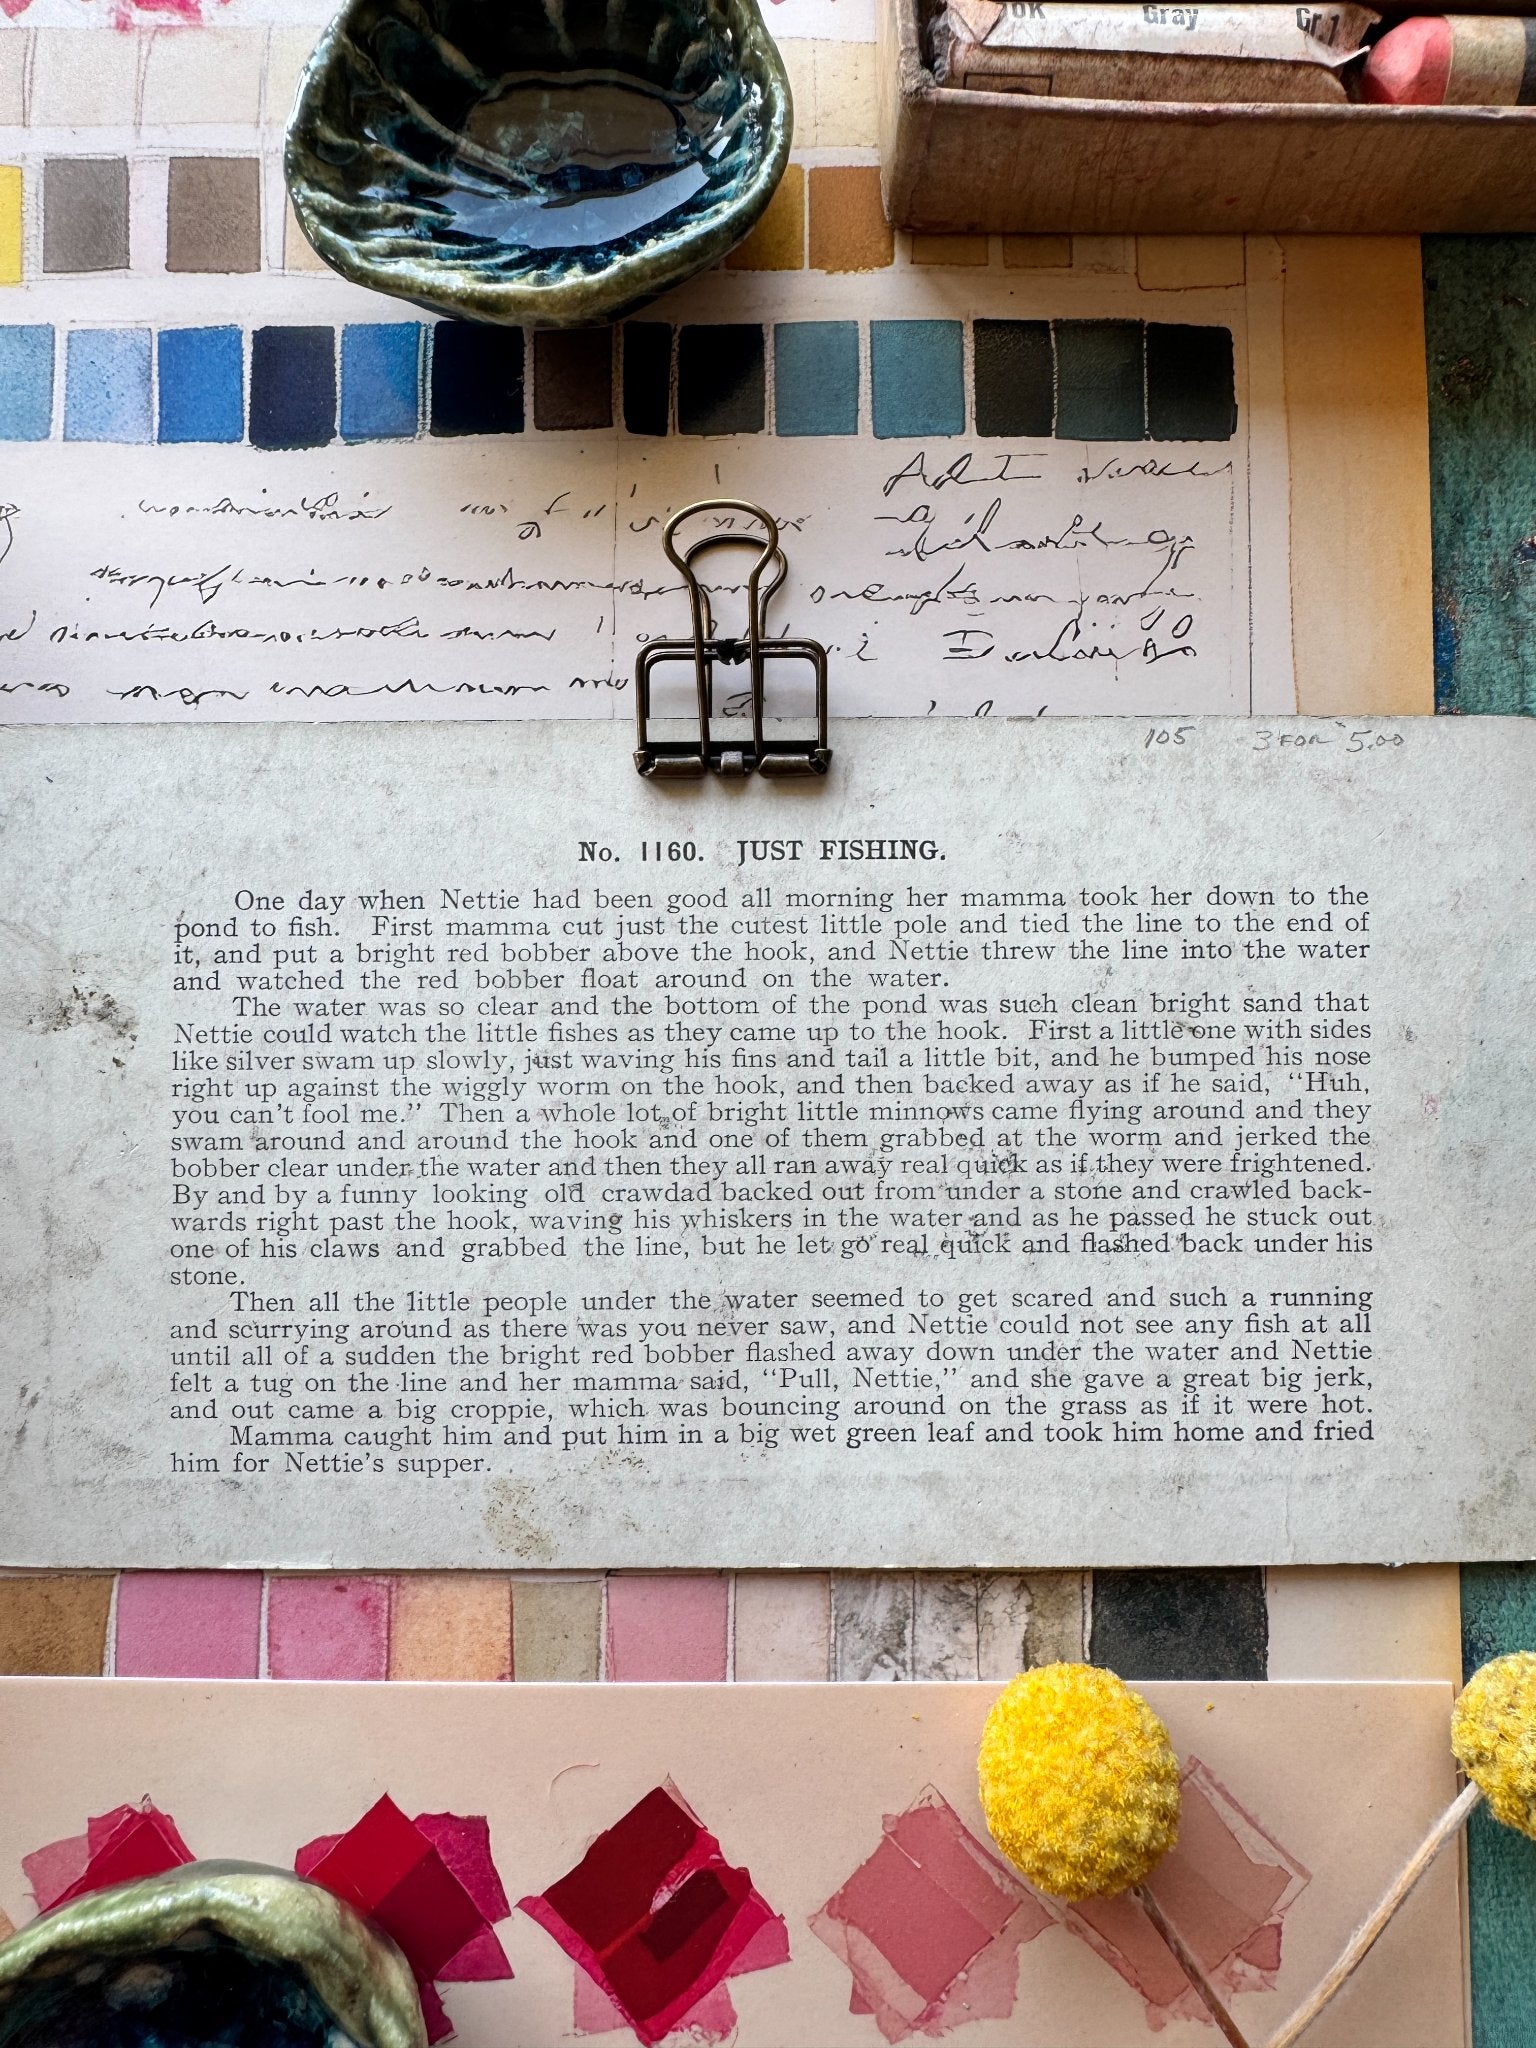 Gray
Gr.1
105 3 FOR 5.00
No. 1160. JUST FISHING.
One day when Nettie had been good all morning her mamma took her down to the
pond to fish. First mamma cut just the cutest little pole and tied the line to the end of
it, and put a bright red bobber above the hook, and Nettie threw the line into the water
and watched the red bobber float around on the water.
The water was so clear and the bottom of the pond was such clean bright sand that
Nettie could watch the little fishes as they came up to the hook. First a little one with sides
like silver swam up slowly, just waving his fins and tail a little bit, and he bumped his nose
right up against the wiggly worm on the hook, and then backed away as if he said, “Huh,
you can't fool me.” Then a whole lot of bright little minnows came flying around and they
swam around and around the hook and one of them grabbed at the worm and jerked the
bobber clear under the water and then they all ran away real quick as if they were frightened.
By and by a funny looking old crawdad backed out from under a stone and crawled back-
wards right past the hook, waving his whiskers in the water and as he passed he stuck out
one of his claws and grabbed the line, but he let go real quick and flashed back under his
stone.
Then all the little people under the water seemed to get scared and such a running
and scurrying around as there was you never saw, and Nettie could not see any fish at all
until all of a sudden the bright red bobber flashed away down under the water and Nettie
felt a tug on the line and her mamma said, “Pull, Nettie,” and she gave a great big jerk,
and out came a big croppie, which was bouncing around on the grass as if it were hot.
Mamma caught him and put him in a big wet green leaf and took him home and fried
him for Nettie's supper.